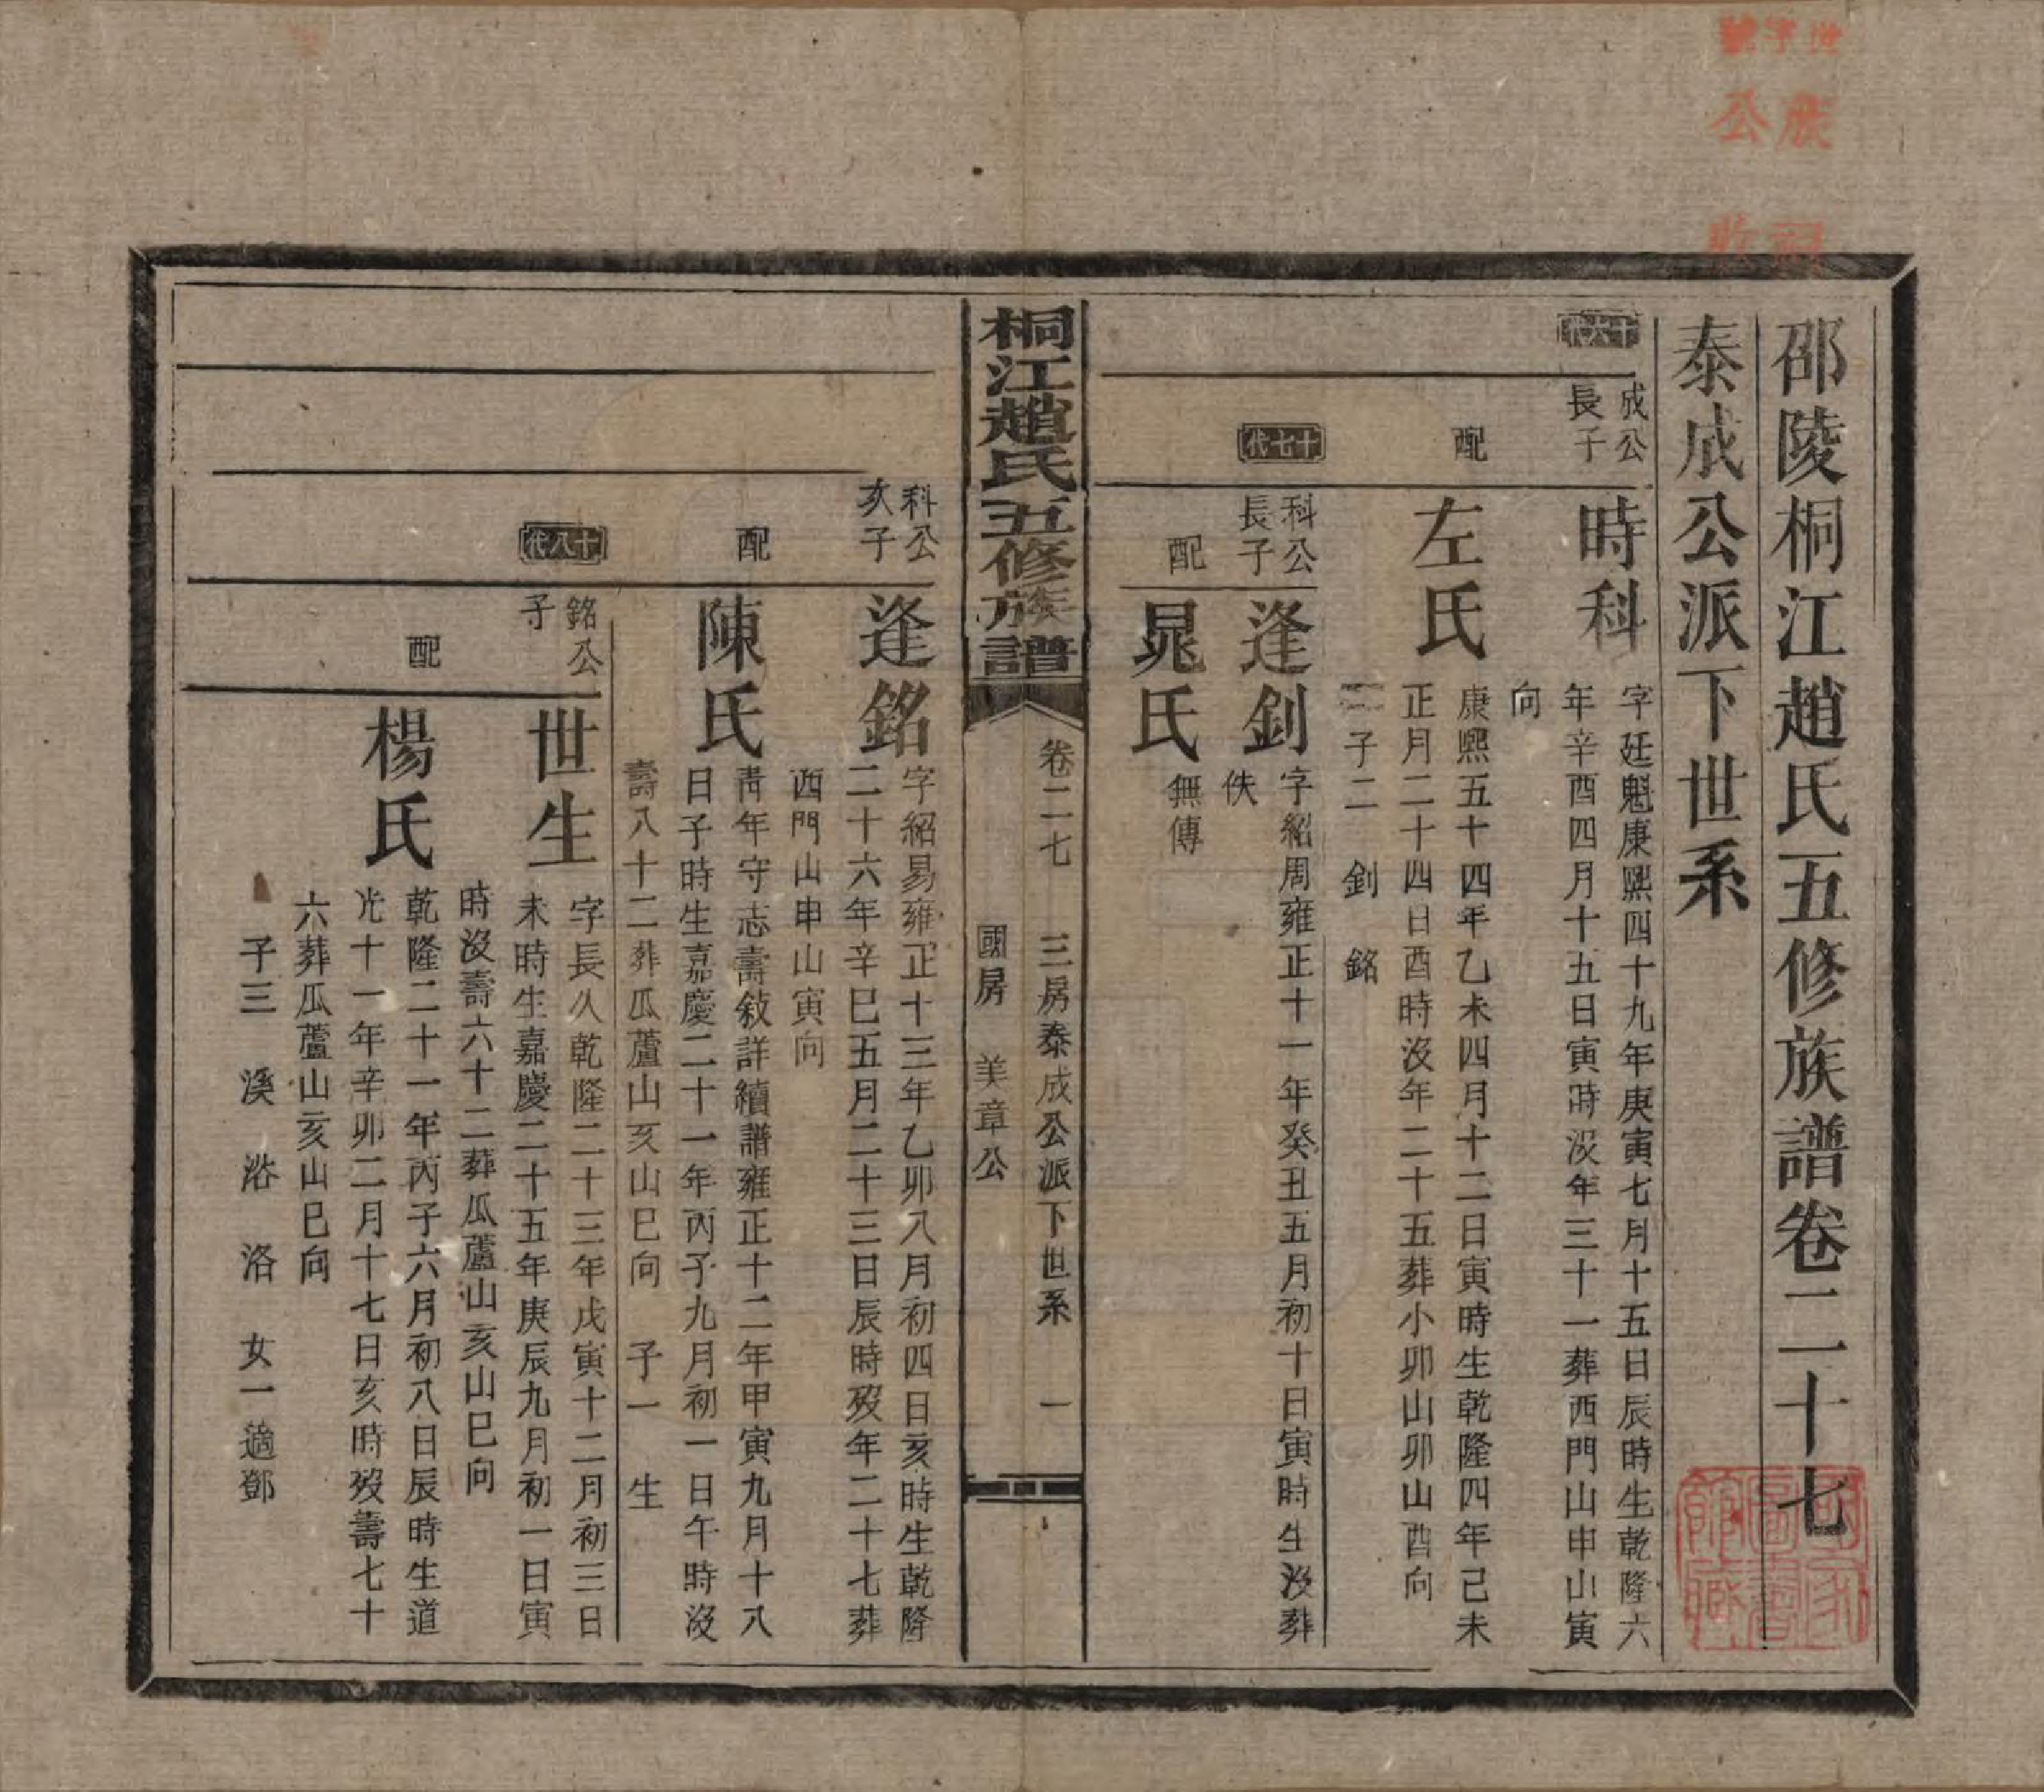 邵陵桐江趙氏五修族譜卷二十七
泰成公派下世系
十六代
成公
長子
時科
字廷魁康熙四十九年庚寅七月十五日辰時生乾隆六
年辛酉四月十五日寅時沒年三十一葬西門山申山寅
向
配
左氏
康熙五十四年乙未四月十二日寅時生乾隆四年己未
正月二十四日酉時沒年二十五葬小卯山卯山酉向
子二 釗 銘
十七代
科公
長子
逢釗
字紹周雍正十一年癸丑五月初十日寅時生沒葬
佚
配
晁氏
無傳
桐江趙氏五修族譜
卷二七 三房泰成公派下世系 一
國房 美章公
科公
次子
逢銘
字紹易雍正十三年乙卯八月初四日亥時生乾隆
二十六年辛巳五月二十三日辰時歿年二十七葬
西門山申山寅向
配
陳氏
青年守志壽敍詳續譜雍正十二年甲寅九月十八
日子時生嘉慶二十一年丙子九月初一日午時沒
壽八十二葬瓜蘆山亥山巳向 子一 生
十八代
銘公
子
世生
字長久乾隆二十三年戊寅十二月初三日
未時生嘉慶二十五年庚辰九月初一日寅
時沒壽六十二葬瓜蘆山亥山巳向
配
楊氏
乾隆二十一年丙子六月初八日辰時生道
光十一年辛卯二月十七日亥時歿壽七十
六葬瓜蘆山亥山巳向
子三 溪 浴 洛 女一適鄧